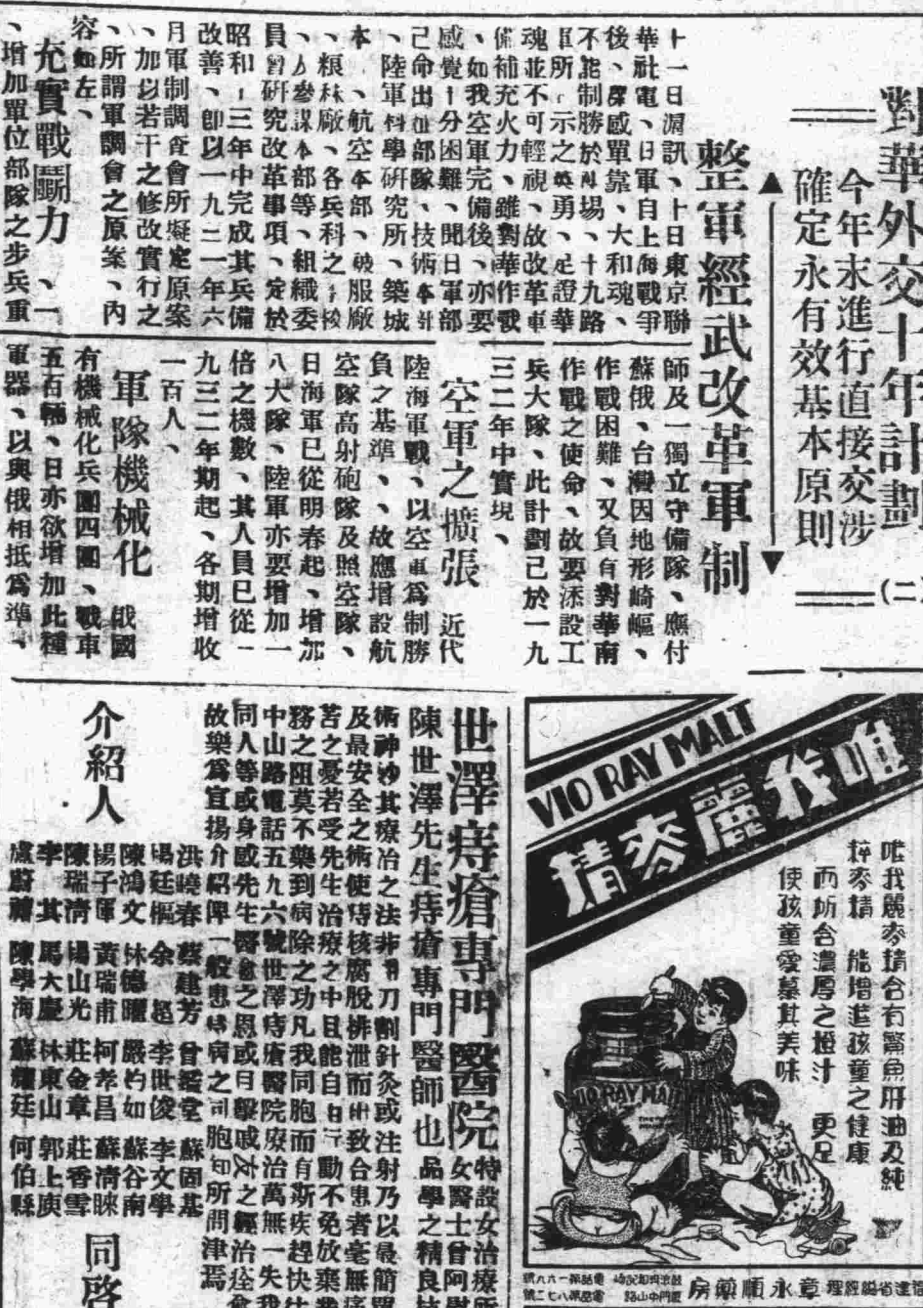 對華外交十年計劃(二)
今年末進行直接交涉
確定永有效基本原則
整軍經武改革軍制
十一日滬訊、十日東京聯
華社電、日軍自上海戰爭
後、羣感單靠、大和魂、
不能制勝於疆場、十九路
軍所 示之英勇、足證華
魂並不可輕視、故改革軍
備補充火力、雖對華作戰
、如我空軍完備後、亦要
感覺十分困難、聞日軍部
己命出 部隊、技術本
、陸軍科學硏究所、築城
本 、航空本部、被服廠
、糧秣廠、各兵科之 校
、 參謀本部等、組織委
員會硏究改革事項、定於
昭和十三年中完成其兵備
改善、卽以一九三一年六
月軍制調查會所擬定原案
、加以若干之修改實行之
、所謂軍調會之原案、內
容如左、
充實戰鬭力、一
、增加單位部隊之步兵重
師及一獨立守備隊、應付
蘇俄、台灣因地形崎嶇、
作戰困難、又負有對華南
作戰之使命、故要添設工
兵大隊、此計劃己於一九
三二年中實現、
空軍之擴張 近代
陸海軍戰、以空軍爲制勝
負之基準、、故應增設航
空隊高射砲隊及照空隊、
日海軍已從明春起、增加
八大隊、陸軍亦要增加一
倍之機數、其人員已從一
九三二年期起、各期增收
一百人、
軍隊機械化 俄國
有機械化兵團四團、戰車
五百輛、日亦欲增加此種
軍器、以與俄相抵爲準、
VIO RAY MALT
唯我麗麥精
唯我麗麥精含有鱉魚肝油及純
粹麥精 能增進孩童之健康
而所含濃厚之橙汁 更足
使孩童愛慕其美味
VIO RAY MALT
建省總經理章永順藥房
廈門中山路 電話第八七二號
電話第一六八號
世澤痔瘡專門醫院
特設女治療所
女醫士曾阿慰
陳世澤先生痔瘡專門醫師也品學之精良技
術神妙其療治之法非用刀割針灸或注射乃以最簡單
及最安全之術使痔核腐脫排泄而 致合患者毫無痛
苦之憂若受先生治療之中且能自由行動不免放棄業
務之阻莫不藥到病除之功凡我同胞而有斯疾趕快
中山路電話五九六號世澤痔瘡醫院療治萬無一失我
同人等或身感先生醫愈之恩或目擊戚友之經治痊愈
故樂爲宣揚介紹俾一般患 病之同胞知所問津焉
介紹人
洪曉春 蔡建芳 曾 堂 蘇固基
楊廷樞 余 超 李世俊 李文學
陳鴻文 林德曜 嚴 如 蘇谷南
楊子暉 黃瑞甫 柯孝昌 蘇淸
陳瑞淸 楊山光 莊金章 莊香雪
李 其 馬大慶 林東山 郭上
盧蔚 陳學海 蘇 廷 何伯
同啓